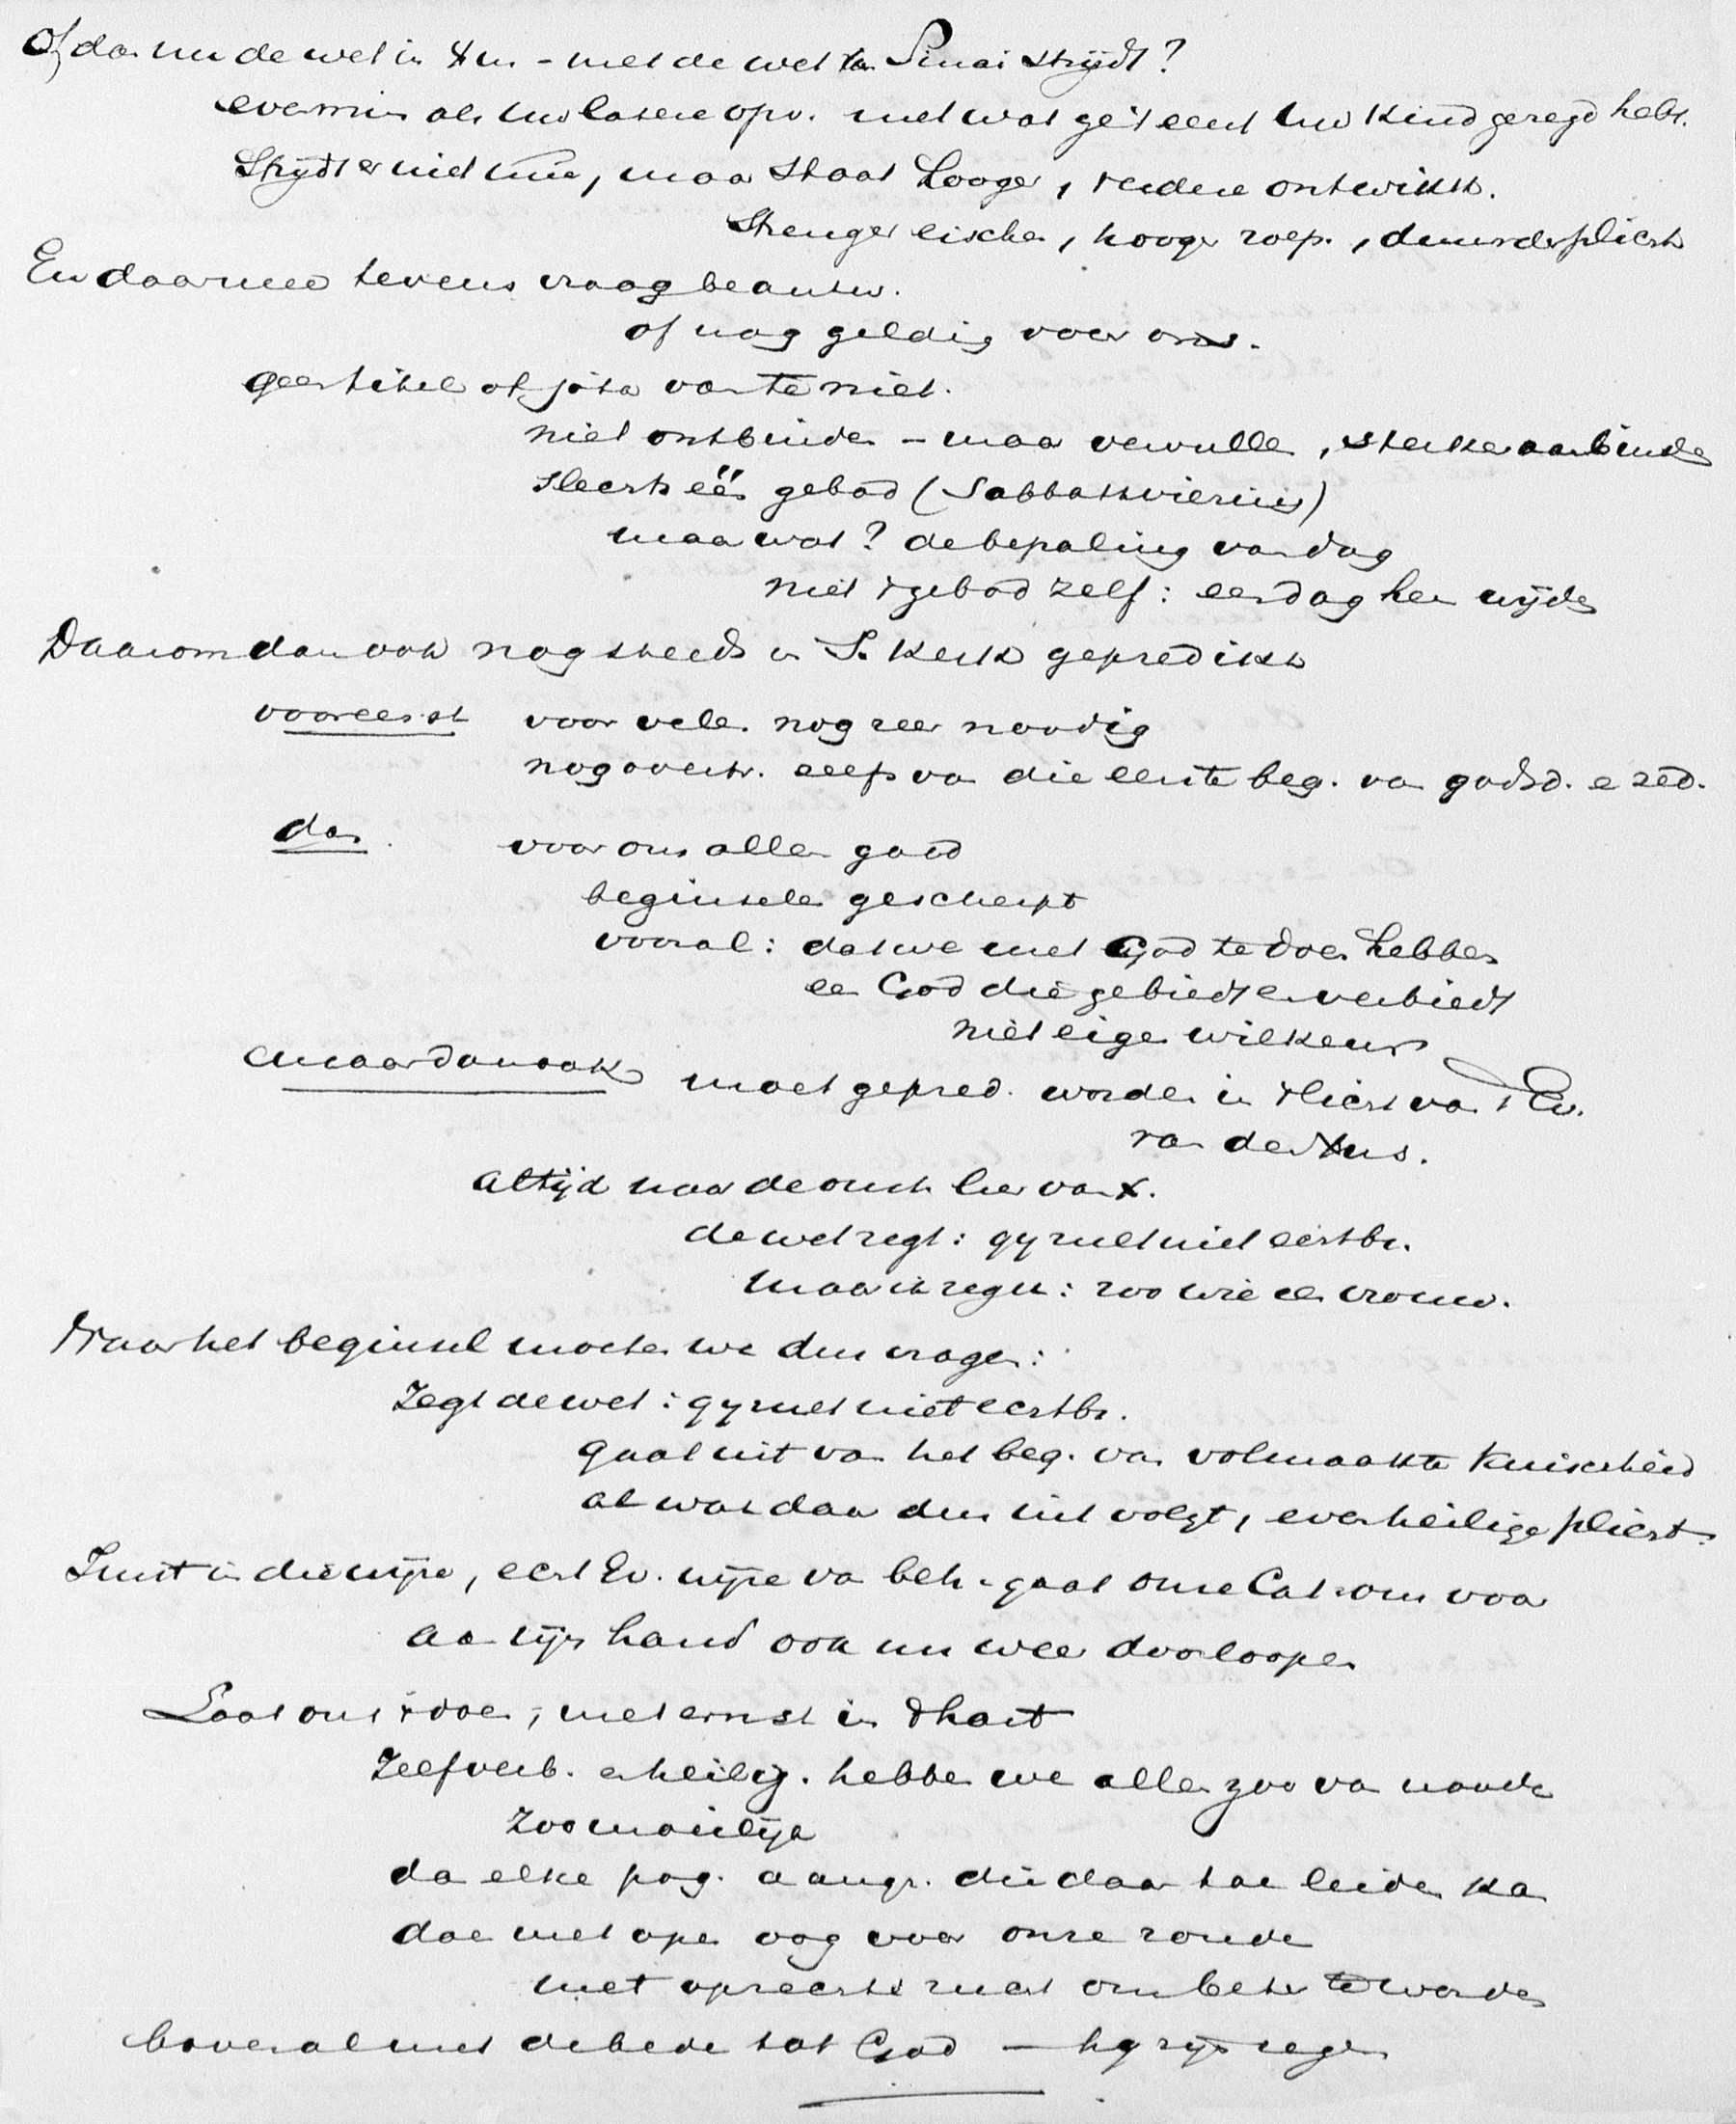 Of dan nu de wet in Xus - met de wet van Sinai strijdt?
evenmin als uw latere opv. met wat ge 't eerst uw kind gezegd hebt.
Strijdt er niet mee, maar staat hooger, verdere ontwikk.
Strenger eischen, hooger roep., duurder plicht
En daarmee tevens vraag beantw.
of nog geldig voor ons.
geen tittel of jota van te niet.
niet ontbinden - maar vervullen, sterker aanbinden
slechts één gebod (Sabbathviering)
maar wat? de bepaling van dag
niet 't gebod zelf: een dag hem wijden
Daarom dan ook nog steeds in X. Kerk gepredikt
vooreerst voor velen nog zeer noodig
nog overtr. zelfs van die eerste beg. van godsd. en zed.
dan voor ons allen goed
beginselen gescherpt
vooral: dat we met God te doen hebben
een God die gebiedt en verbiedt
niet eigen willekeur
maar dan ook moet gepred. worden in 't licht van 't Ev.
van de Xus.
altijd naar de ontw. leer van X.
de wet zegt: gy zult niet echtbr.
maar ik zeg u: zoo wie een vrouw.
Naar het beginsel moeten we dus vragen:
Zegt de wet: gy zult niet echtbr.
gaat uit van het beg. van volmaakte kuischheid
al wat daar dus uit volgt, even heilige plicht
Juist in die wijze, echt Ev. wijze van beh. gaat onze Cat. ons voor
aan zijn hand ook nu weer doorloopen
Laat ons 't doen, met ernst in 't hart
Zelfverb. en heilig. hebben we allen zoo van noode
zoo moeilijk
dan elke pog. aangr. die daar toe leiden kan
doen met open oog voor onze zonde
met oprechte zucht om beter te worden
bovenal met de bede tot God - hy zijn zegen